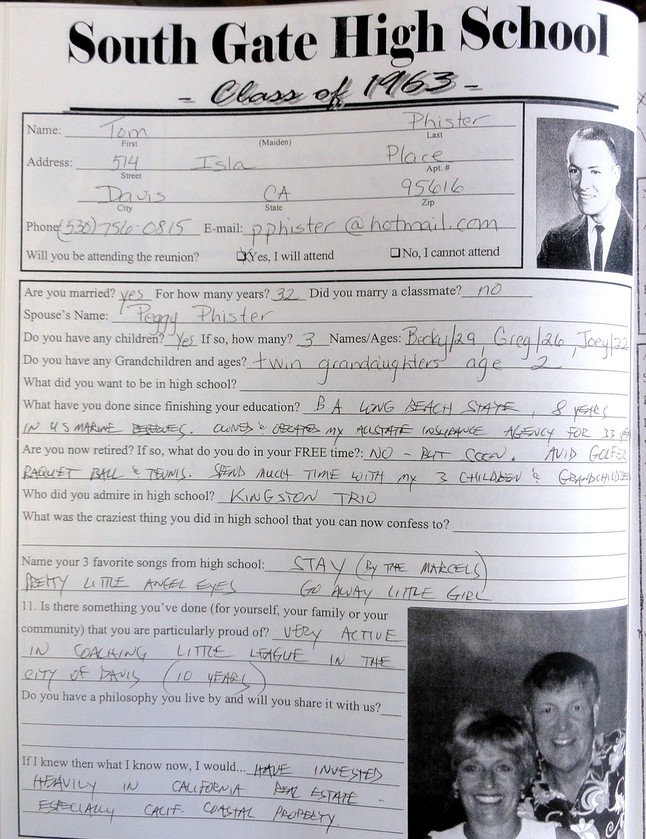 South Gate High School
- Class of 1963 -
Name: Tom Phister
First (Maiden) Last
Address: 514 Isla Place
Street Apt. #
Davis CA 95616
City State Zip
Phone (530) 756-0815 E-mail: pphister@hotmail.com
Will you be attending the reunion? Yes, I will attend No, I cannot attend
Are you married? yes For how many years? 32 Did you marry a classmate? no
Spouse's Name: Peggy Phister
Do you have any children? Yes If so, how many? 3 Names/Ages: Becky/29, Greg/26, Joey/22
Do you have any Grandchildren and ages? twin grandaughters age 2
What did you want to be in high school?
What have you done since finishing your education? BA LONG BEACH STATE, 8 YEARS
IN US MARINE. OWNED & OPERATED MY ALLSTATE INSURANCE AGENCY FOR 33
Are you now retired? If so, what do you do in your FREE time?: NO - BUT SOON. AVID GOLFER
RAQUET BALL & TENNIS. SPEND MUCH TIME WITH MY 3 CHILDREN & GRANDCHILDREN
Who did you admire in high school? KINGSTON TRIO
What was the craziest thing you did in high school that you can now confess to?
Name your 3 favorite songs from high school: STAY (BY THE MARCELS)
PRETTY LITTLE ANGEL EYES GO AWAY LITTLE GIRL
11. Is there something you've done (for yourself, your family or your
community) that you are particularly proud of? VERY ACTIVE
IN COACHING LITTLE LEAGUE IN THE
CITY OF DAVIS (10 YEARS)
Do you have a philosophy you live by and will you share it with us?
If I knew then what I know now, I would... HAVE INVESTED
HEAVILY IN CALIFORNIA REAL ESTATE -
ESPECIALLY CALIF. COASTAL PROPERTY.